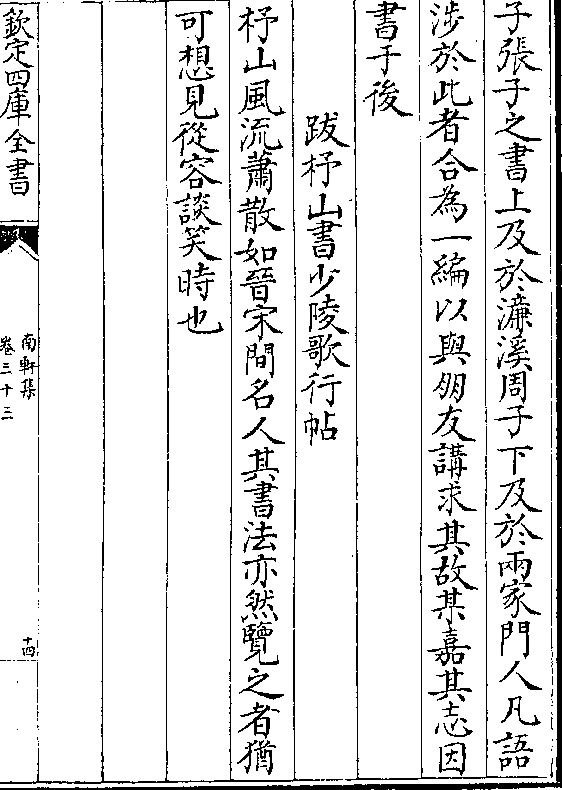 子張子之書上及於濂溪周子下及於兩家門人凡語
涉於此者合為一編以與朋友講求其故某嘉其志因
書于後
跋杼山書少陵歌行帖
杼山風流蕭散如晉宋間名人其書法亦然覽之者猶
可想見從容談笑時也
欽定四庫全書
南軒集
卷三十三
十四